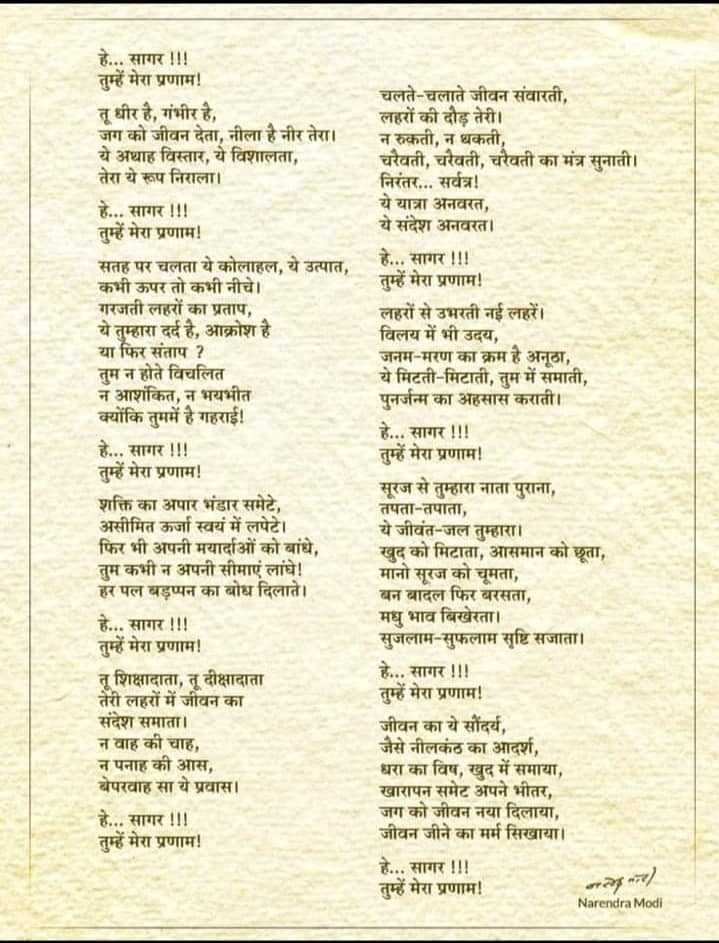 हे... सागर !!!
तुम्हें मेरा प्रणाम!
तू धीर है, गंभीर है,
जग को जीवन देता, नीला है नीर तेरा।
ये अथाह विस्तार, ये विशालता,
तेरा ये रूप निराला।
हे... सागर !!!
तुम्हें मेरा प्रणाम!
सतह पर चलता ये कोलाहल, ये उत्पात,
कभी ऊपर तो कभी नीचे।
गरजती लहरों का प्रताप,
ये तुम्हारा दर्द है, आक्रोश है
या फिर संताप ?
तुम न होते विचलित
न आशंकित, न भयभीत
क्योंकि तुममें है गहराई!
हे... सागर !!!
तुम्हें मेरा प्रणाम!
शक्ति का अपार भंडार समेटे,
असीमित ऊर्जा स्वयं में लपेटे।
फिर भी अपनी मयार्दाओं को बांधे,
तुम कभी न अपनी सीमाएं लांघे!
हर पल बड़प्पन का बोध दिलाते।
हे... सागर !!!
तुम्हें मेरा प्रणाम!
तू शिक्षादाता, तू दीक्षादाता
तेरी लहरों में जीवन का
संदेश समाता।
न वाह की चाह,
न पनाह की आस,
बेपरवाह सा ये प्रवास।
हे... सागर !!!
तुम्हें मेरा प्रणाम!
चलते-चलाते जीवन संवारती,
लहरों की दौड़ तेरी।
न रुकती, न थकती,
चरैवती, चरैवती, चरैवती का मंत्र सुनाती।
निरंतर... सर्वत्र!
ये यात्रा अनवरत,
ये संदेश अनवरत।
हे... सागर !!!
तुम्हें मेरा प्रणाम!
लहरों से उभरती नई लहरें।
विलय में भी उदय,
जनम-मरण का क्रम है अनूठा,
ये मिटती-मिटाती, तुम में समाती,
पुनर्जन्म का अहसास कराती।
हे... सागर !!!
तुम्हें मेरा प्रणाम!
सूरज से तुम्हारा नाता पुराना,
तपता-तपाता,
ये जीवंत-जल तुम्हारा।
खुद को मिटाता, आसमान को छूता,
मानो सूरज को चूमता,
बन बादल फिर बरसता,
मधु भाव बिखेरता।
सुजलाम-सुफलाम सृष्टि सजाता।
हे... सागर !!!
तुम्हें मेरा प्रणाम!
जीवन का ये सौंदर्य,
जैसे नीलकंठ का आदर्श,
धरा का विष, खुद में समाया,
खारापन समेट अपने भीतर,
जग को जीवन नया दिलाया,
जीवन जीने का मर्म सिखाया।
हे... सागर !!!
तुम्हें मेरा प्रणाम!
Narendra Modi